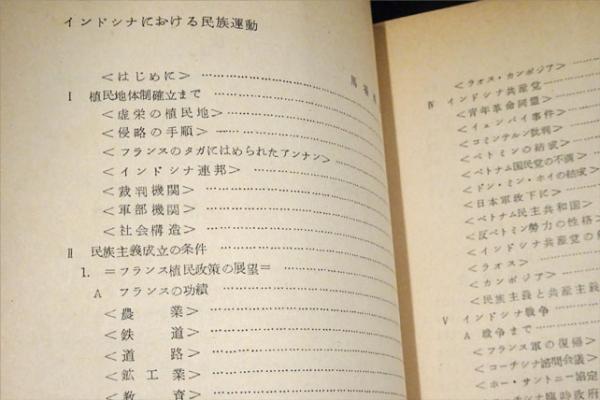 インドシナにおける民族運動
<はじめに>
Ⅰ 植民地体制確立まで
<虚栄の植民地>
<侵略の手順>
<フランスのタガにはめられたアンナン>
<インドシナ連邦>
<裁判機関>
<軍部機関>
<社会構造>
Ⅱ 民族主義成立の条件
1. =フランス植民政策の展望=
A フランスの功績
<農業>
<鉄道>
<道路>
<鉱工業>
<教育>
<ラオス・カンボジア>
Ⅳ インドシナ共産党
<青年革命同盟>
<イェンバイ事件>
<コミンテルン批判>
<ベトミンの結成>
<ベトナム国民党の不満>
<ドン・ミン・ホイの結成>
<日本軍政下に>
<ベトナム民主共和国>
<反ベトミン勢力の性格>
<インドシナ共産党の
<ラオス>
<カンボジア>
<民族主義と共産主義
Ⅴ インドシナ戦争
A 戦争まで
<フランス軍の復帰>
<コーチシナ諮問会議>
<ホー・サントニー協定
<コーチシナ臨時政府